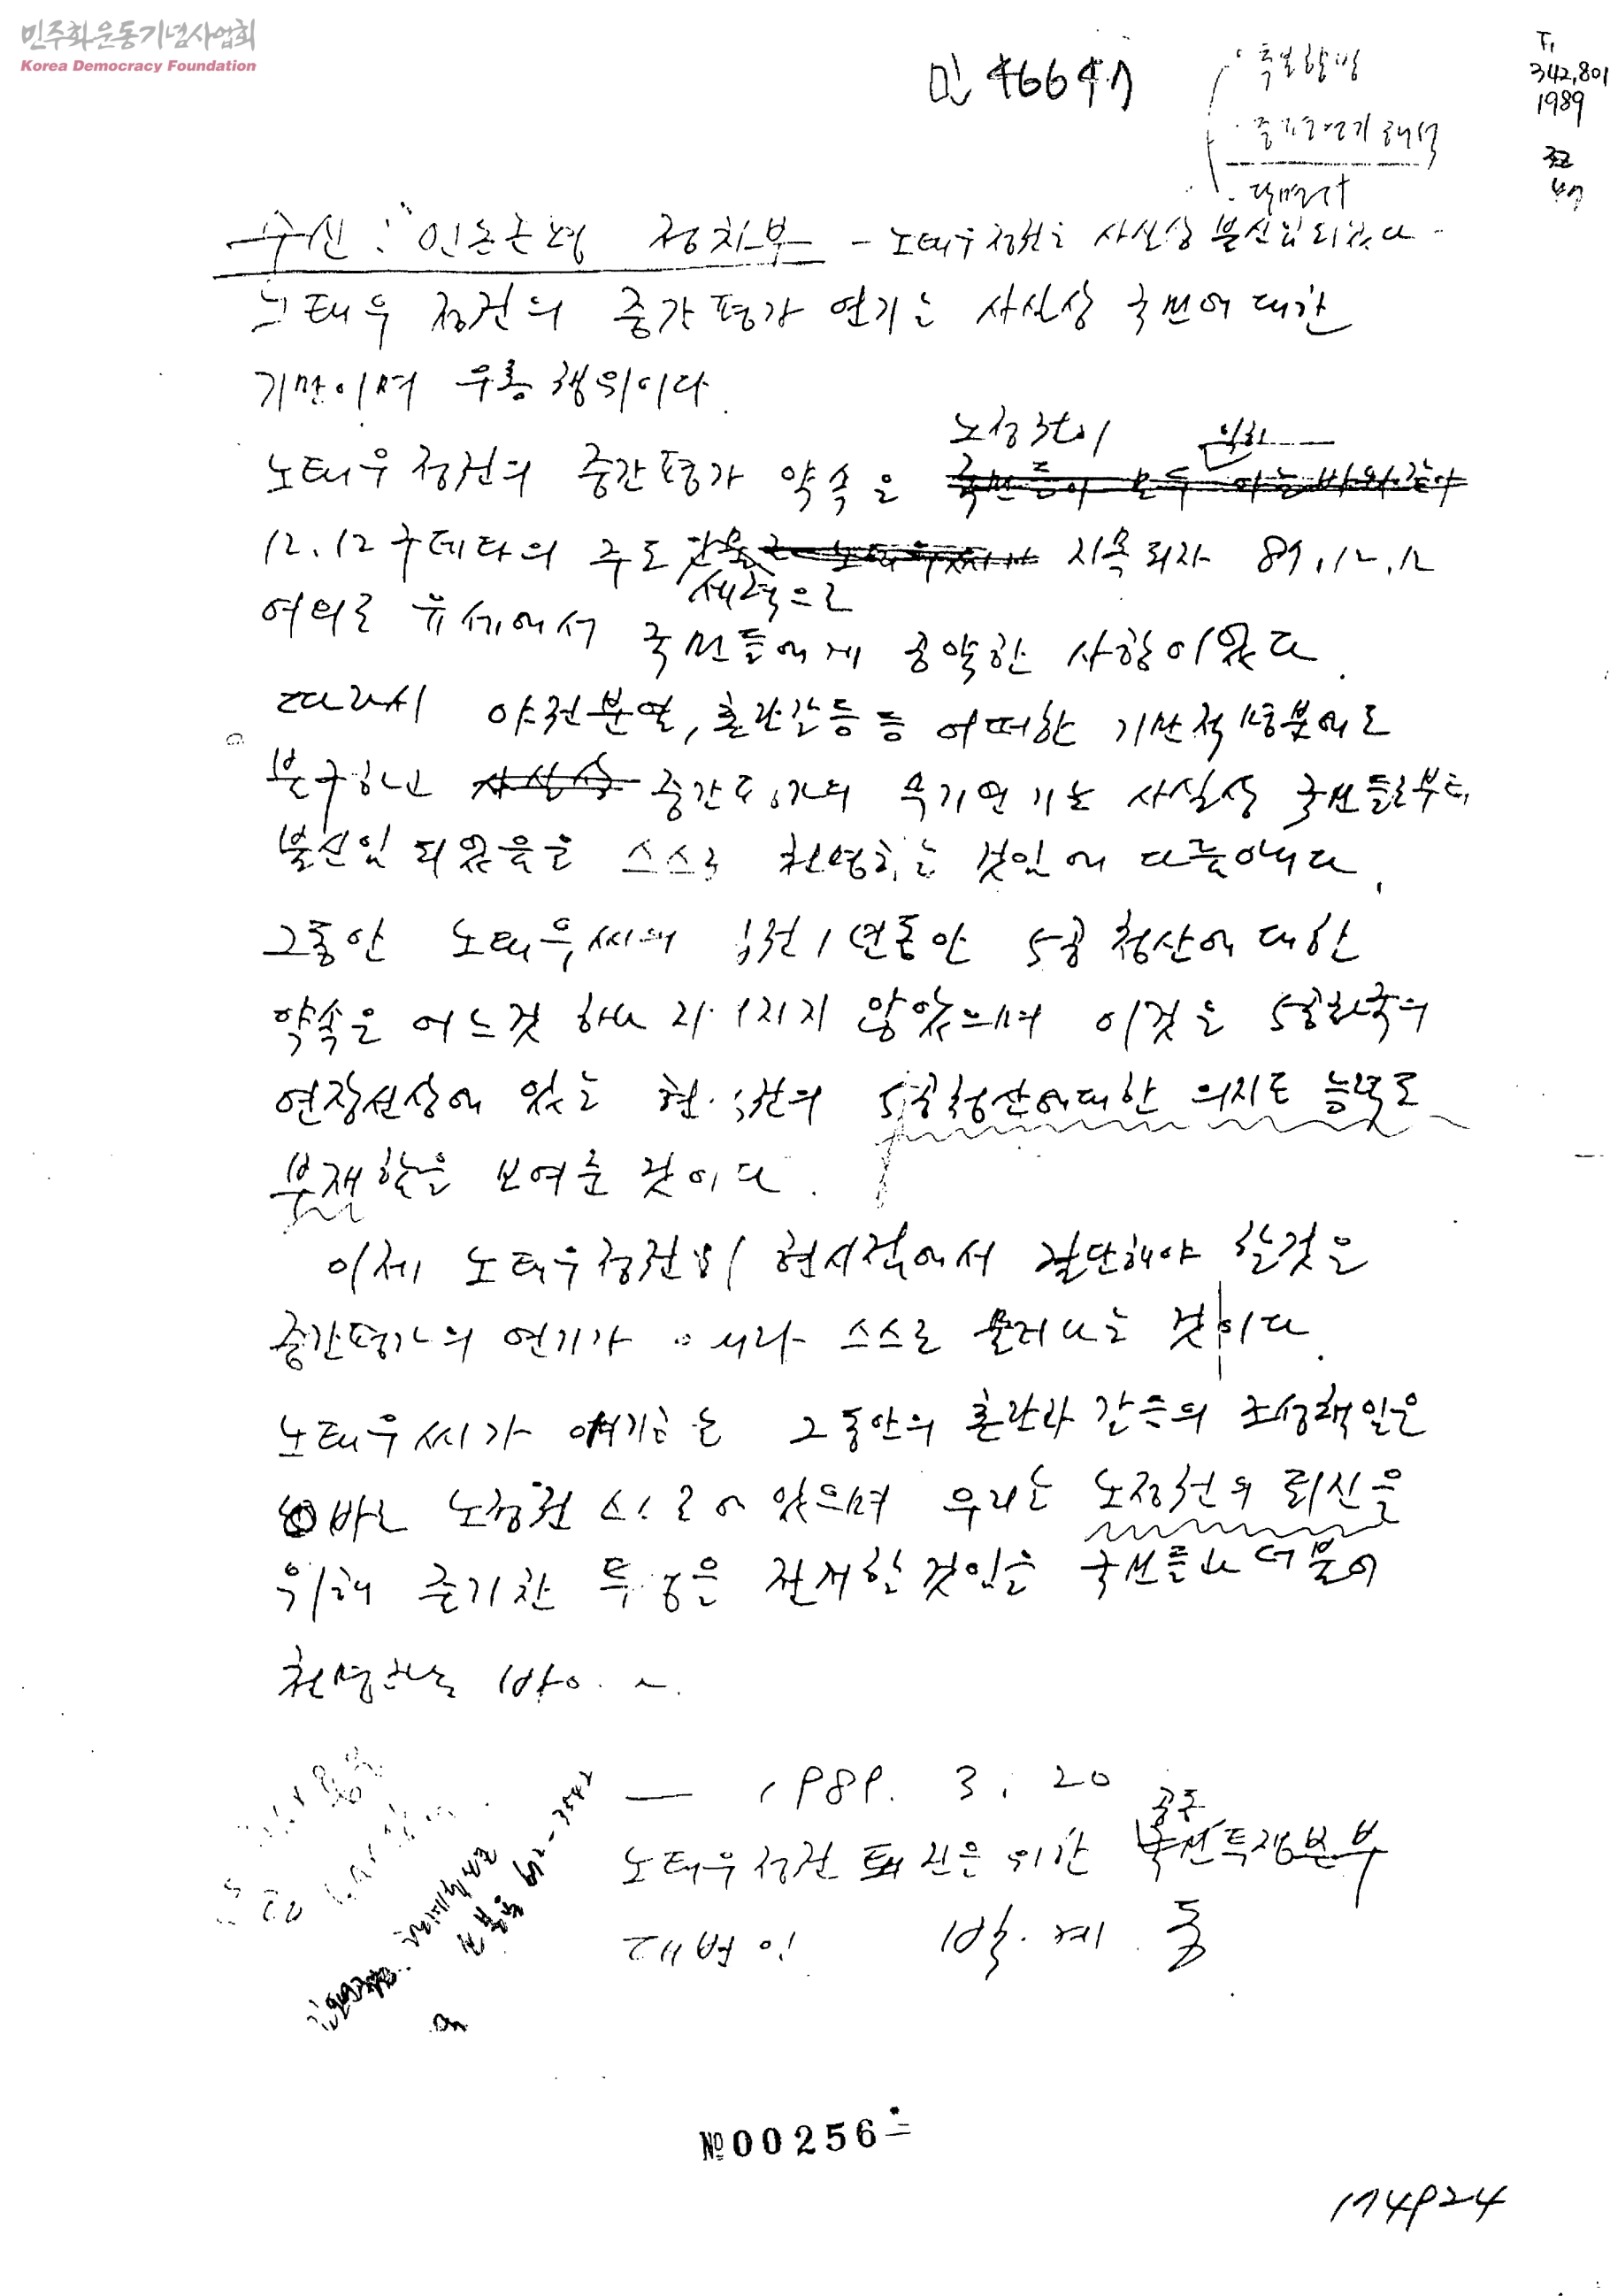 민주화운동기념사업회
Korea Democracy Foundation
민 46647
342,801
1989
47
수신 : 정치부 - 노태우정권은 사실상 불신임되었다 -
노태우 정권의 중간평가 연기는 사실상 국민에 대한
기만이며 우롱행위이다.
노정권이 위한
노태우정권의 중간평가 약속은 국민들이 모두 아는바와같이
12.12 쿠데타의 주도 지목되자 89.12.12
세력으로
여의도 유세에서 국민들에게 공약한 사항이었다.
따라서 야권분열, 혼란갈등등 어떠한 기만적명분에도
불구하고 사실상 중간평가의 무기연기는 사실상 국민들로부터
불신임 되었음을 스스로 천명하는 것임에 다름아니다.
그동안 노태우씨의 집권 1년동안 5공청산에 대한
약속은 어느것 하나 지켜지지 않았으며 이것은 5공화국의
연장선상에 있는 현정권의 5공청산에대한 의지도 능력도
부재함을 보여준 것이다.
이제 노태우정권이 현시점에서 결단해야 할것은
중간평가의 연기가 아니라 스스로 물러나는 것이다.
노태우씨가 얘기하는 그동안의 혼란과 갈등의 조성책임은
바로 노정권 스스로에 있으며 우리는 노정권의 퇴진을
위해 줄기찬 투쟁을 전개할 것임을 국민들과 더불어
천명하는 바이다.
— 1989. 3. 20
공주
노태우정권 퇴진을 위한 국민투쟁본부
대변인 박. 계. 동
62-3542
№00256
174924